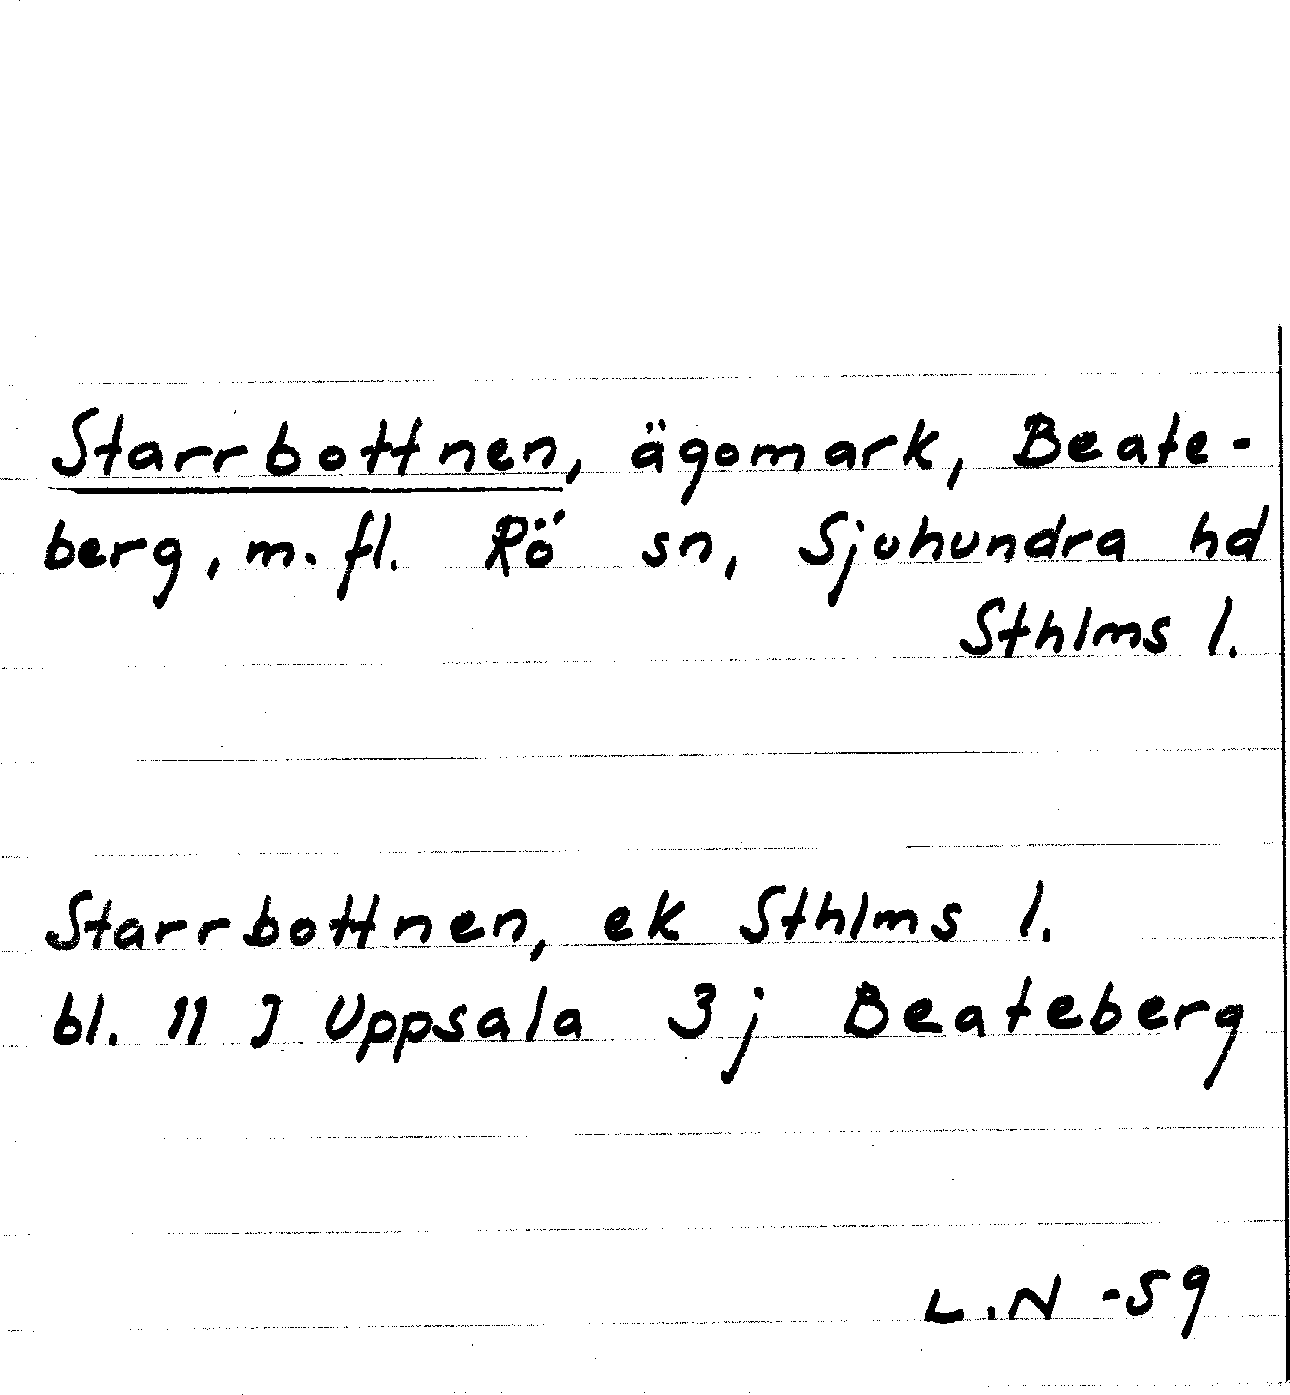 Starrbottnen, ägomark, Beate-
berg, m.fl. Rö sn, Sjuhundra hd
Sthlms l.
Starrbottnen, ek Sthlms l.
bl. 11 J Uppsala 3j Beateberg
L.N -59